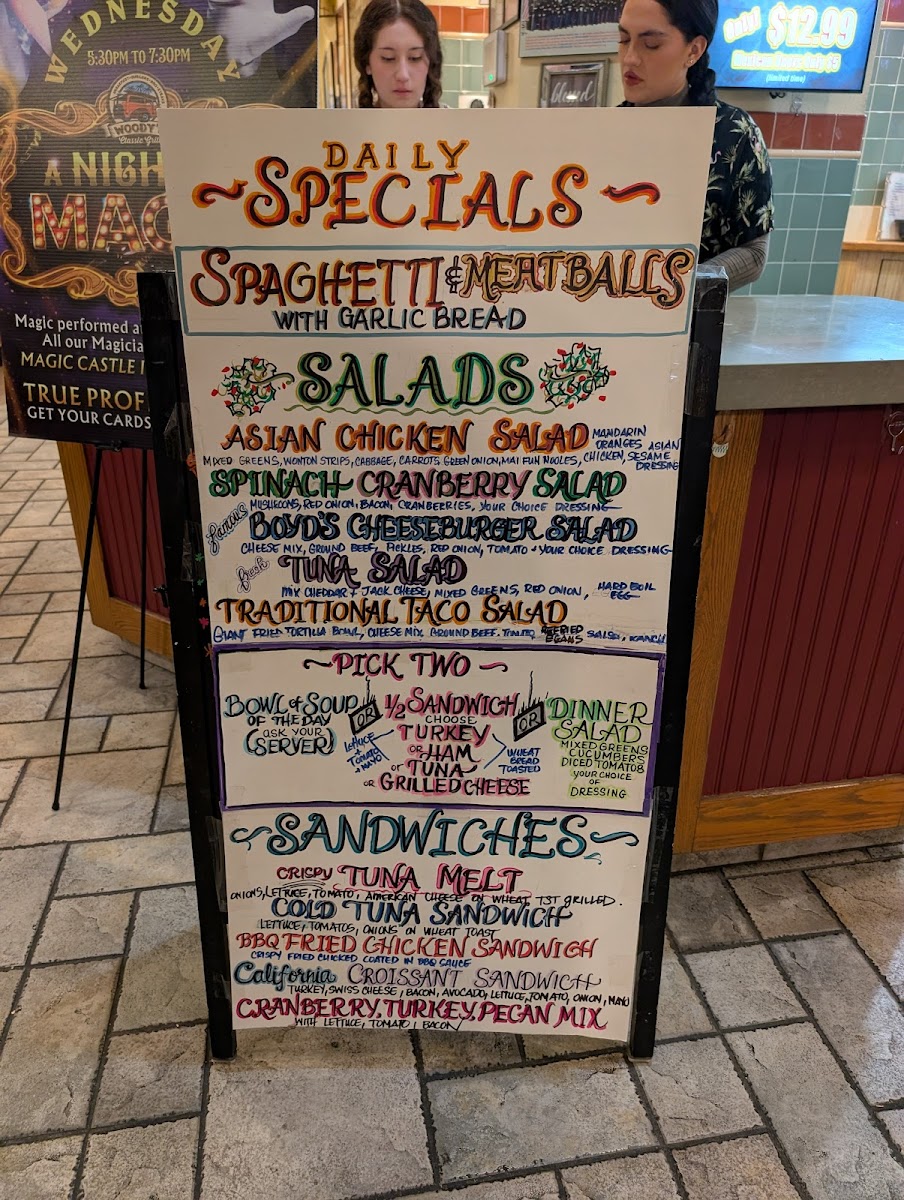 WEDNESDAY
5:30PM TO 7:30PM
WOODY'S
Classic Grill
A NIGH
MAG
Magic performed a
All our Magicia
MAGIC CASTLE
TRUE PROF
GET YOUR CARDS
Only $12.99
(limited time)
blessed
DAILY
~SPECIALS~
SPAGHETTI & MEATBALLS
WITH GARLIC BREAD
SALADS
ASIAN CHICKEN SALAD MANDARIN
ORANGES ASIAN
MIXED GREENS, WONTON STRIPS, CABBAGE, CARROTS GREEN ONION, MAI FUN NOOLES, CHICKEN, SESAME
DRESSING
SPINACH CRANBERRY SALAD
MUSHROOMS, RED ONION, BACON, CRANBERRIES, YOUR CHOICE DRESSING
famous BOYD'S CHEESEBURGER SALAD
CHEESE MIX, GROUND BEEF, PICKLES, RED ONION, TOMATO + YOUR CHOICE DRESSING
fresh TUNA SALAD
MIX CHEDDAR + JACK CHEESE, MIXED GREENS, RED ONION, HARD BOIL
EGG
TRADITIONAL TACO SALAD
GIANT FRIED TORTILLA BOWL, CHEESE MIX, GROUND BEEF, TOMATO, REFRIED BEANS SALSA, RANCH
~PICK TWO~
BOWL of SOUP
OF THE DAY
ASK YOUR
(SERVER)
OR
1/2 SANDWICH
CHOOSE
TURKEY
OR HAM
OR TUNA
OR GRILLED CHEESE
LETTUCE
+
TOMATO
+ MAYO
WHEAT
BREAD
TOASTED
OR
DINNER
SALAD
MIXED GREENS
CUCUMBERS
DICED TOMATOS
YOUR CHOICE
OF
DRESSING
~SANDWICHES~
CRISPY TUNA MELT
ONIONS, LETTUCE, TOMATO, AMERICAN CHEESE ON WHEAT, TST GRILLED.
COLD TUNA SANDWICH
LETTUCE, TOMATOS, ONIONS ON WHEAT TOAST
BBQ FRIED CHICKEN SANDWICH
CRISPY FRIED CHICKED COATED IN BBQ SAUCE
California CROISSANT SANDWICH
TURKEY, SWISS CHEESE, BACON, AVOCADO, LETTUCE, TOMATO, ONION, MAYO
CRANBERRY, TURKEY, PECAN MIX
WITH LETTUCE, TOMATO, BACON